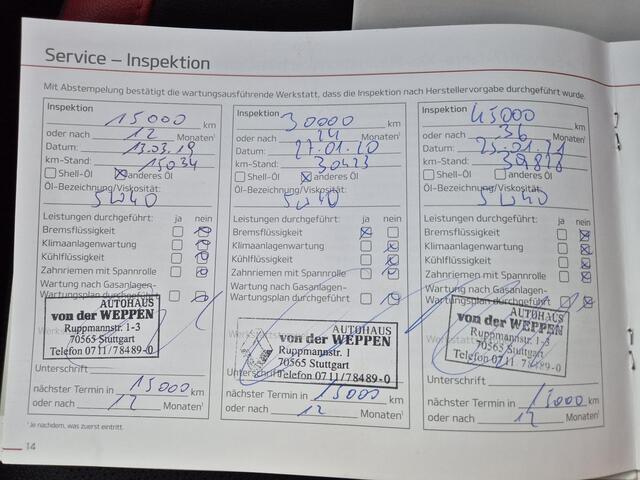 Service – Inspektion
Mit Abstempelung bestätigt die wartungsausführende Werkstatt, dass die Inspektion nach Herstellervorgabe durchgeführt wurde.
Inspektion 15000 km
oder nach 12 Monaten¹
Datum: 13.03.19
km-Stand: 15034
Shell-Öl anderes Öl
Öl-Bezeichnung/Viskosität:
5W40
Leistungen durchgeführt: ja nein
Bremsflüssigkeit
Klimaanlagenwartung
Kühlflüssigkeit
Zahnriemen mit Spannrolle
Wartung nach Gasanlagen-
Wartungsplan durchgeführt
AUTOHAUS
von der WEPPEN
Ruppmannstr. 1-3
70565 Stuttgart
Telefon 0711/78489-0
Unterschrift
nächster Termin in 15000 km
oder nach 12 Monaten¹
Inspektion 30000 km
oder nach 24 Monaten¹
Datum: 27.01.20
km-Stand: 30423
Shell-Öl anderes Öl
Öl-Bezeichnung/Viskosität:
5W40
Leistungen durchgeführt: ja nein
Bremsflüssigkeit
Klimaanlagenwartung
Kühlflüssigkeit
Zahnriemen mit Spannrolle
Wartung nach Gasanlagen-
Wartungsplan durchgeführt
AUTOHAUS
von der WEPPEN
Ruppmannstr. 1
70565 Stuttgart
Telefon 0711/78489-0
Unterschrift
nächster Termin in 15000 km
oder nach 12 Monaten¹
Inspektion 45000 km
oder nach 36 Monaten¹
Datum: 25.01.21
km-Stand:
Shell-Öl anderes Öl
Öl-Bezeichnung/Viskosität:
5W40
Leistungen durchgeführt: ja nein
Bremsflüssigkeit
Klimaanlagenwartung
Kühlflüssigkeit
Zahnriemen mit Spannrolle
Wartung nach Gasanlagen-
Wartungsplan durchgeführt
AUTOHAUS
von der WEPPEN
Ruppmannstr. 1-3
70565 Stuttgart
Telefon 0711/78489-0
Unterschrift
nächster Termin in 15000 km
oder nach 12 Monaten¹
¹Je nachdem, was zuerst eintritt.
14